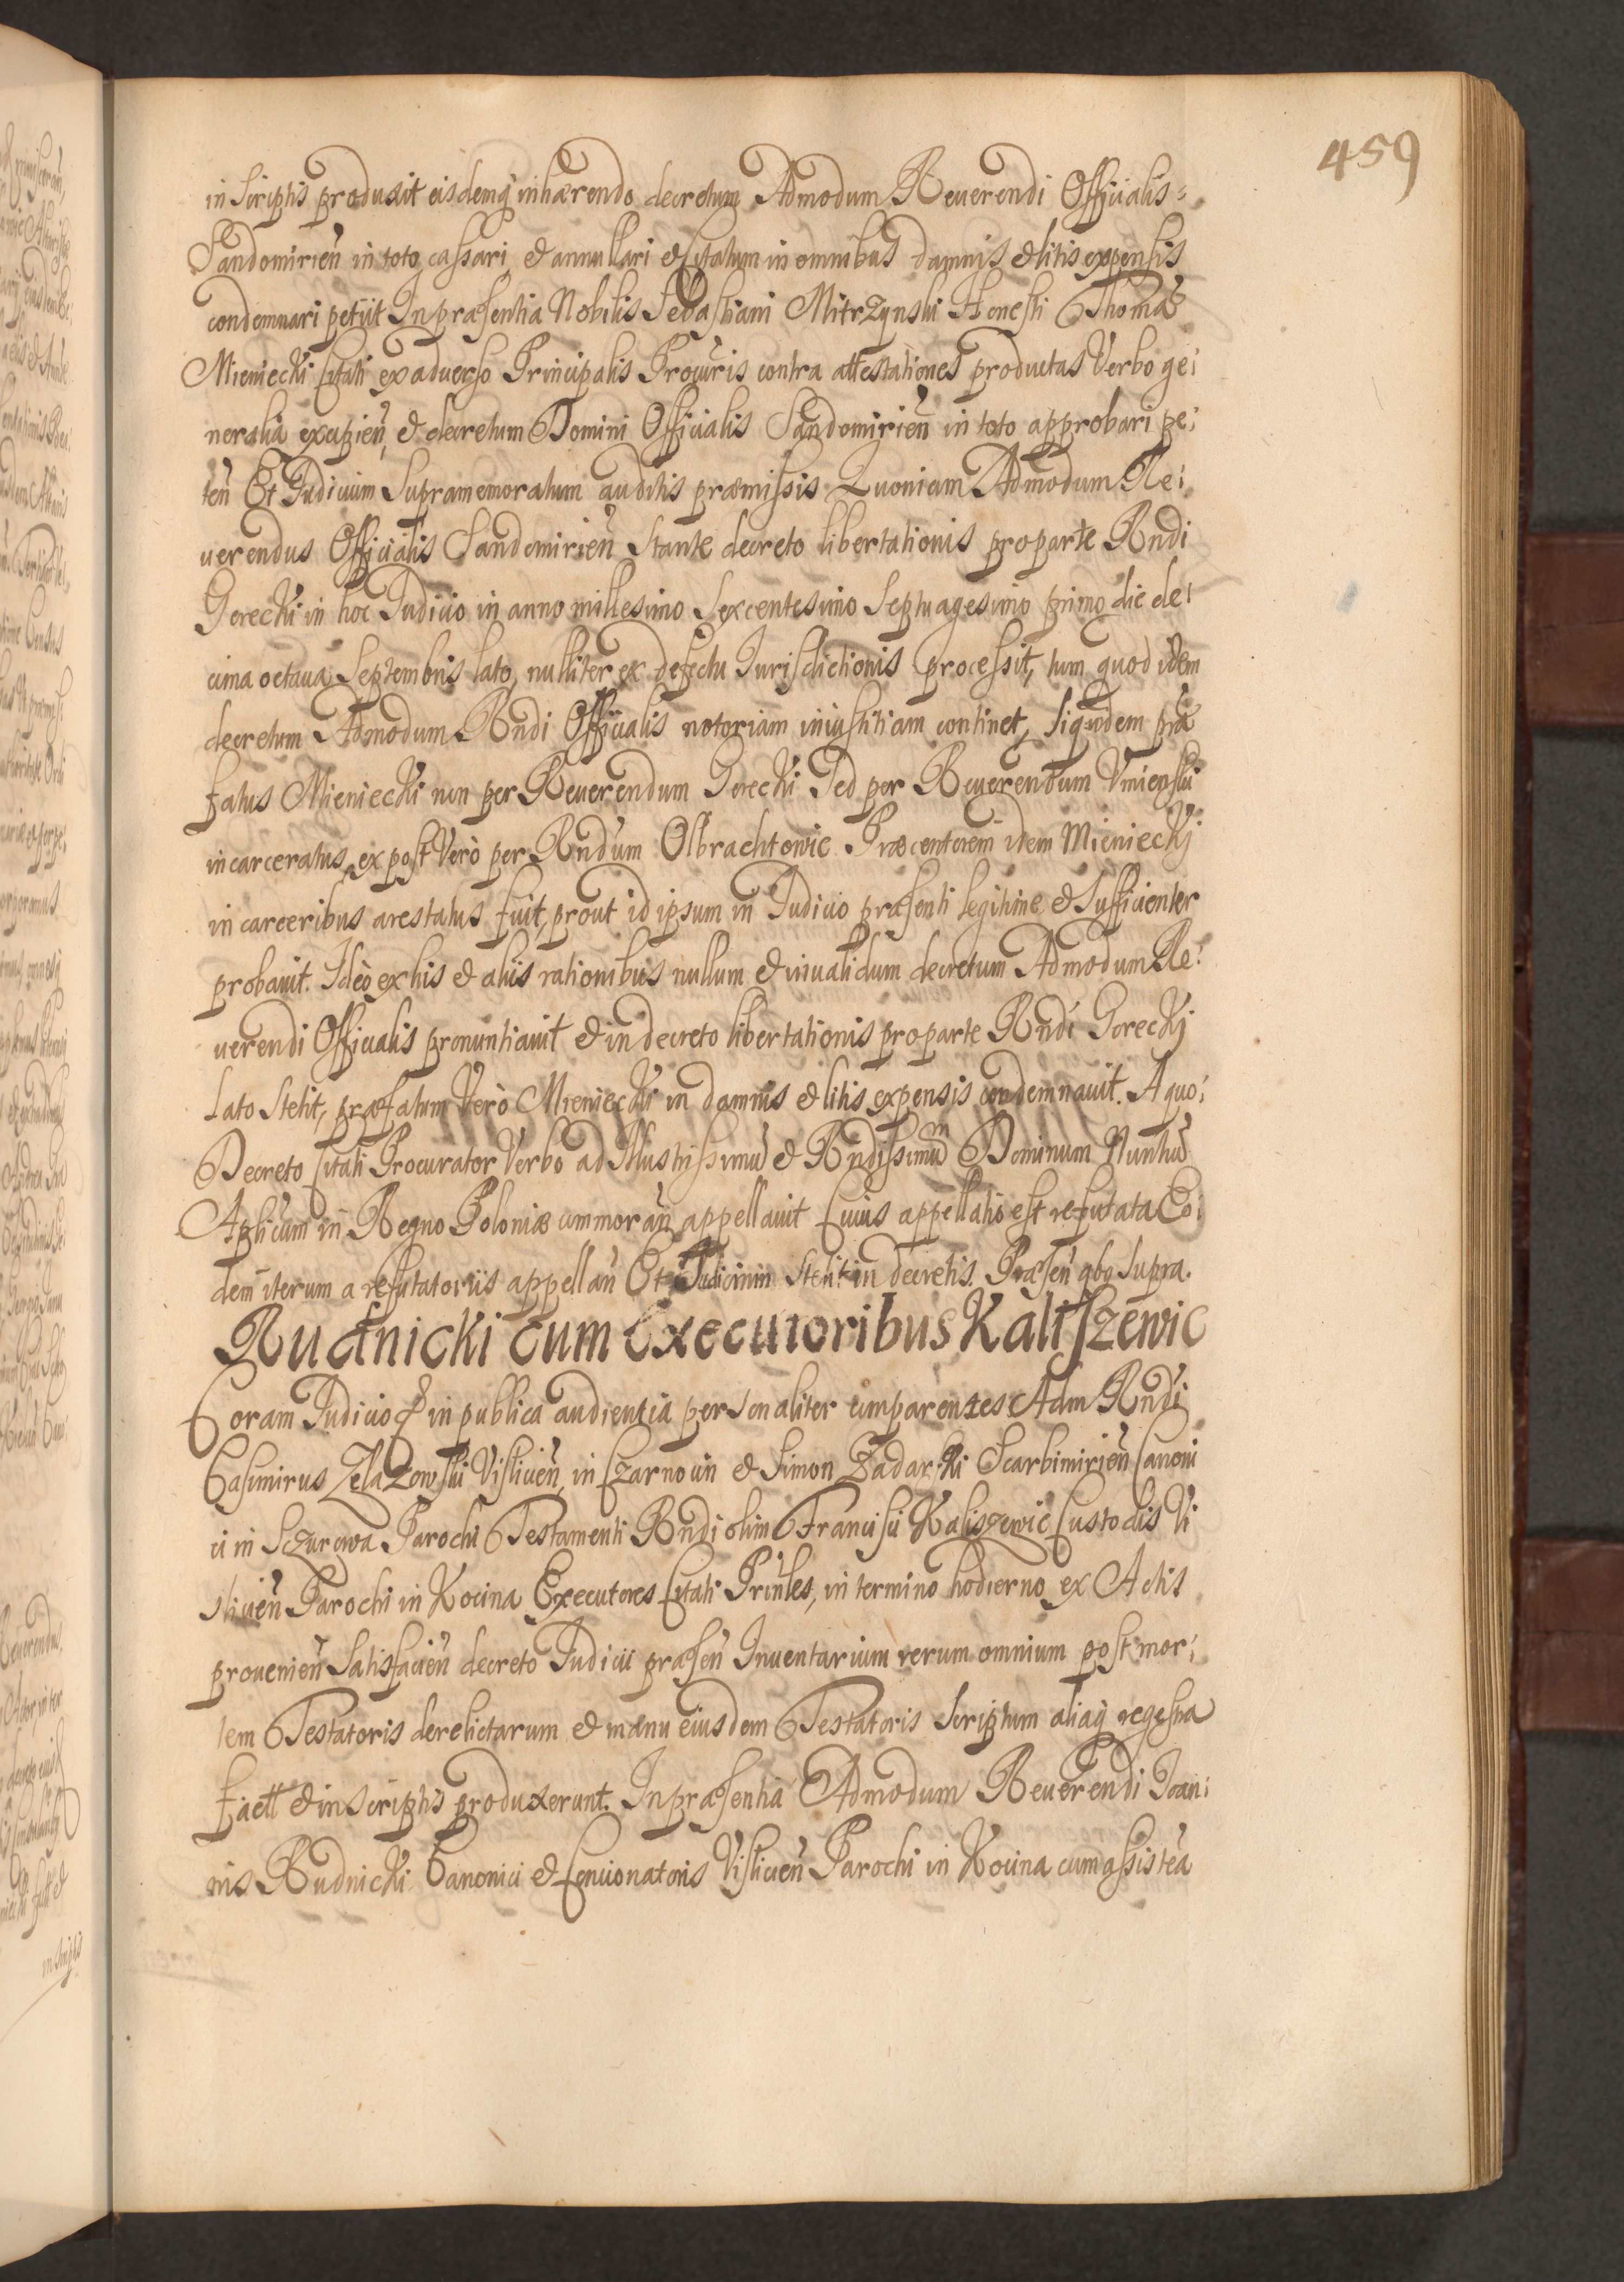 459
in Scriptis produxit eisdemq inhærendo decretum Admodum Reuerendi Officialis
Sandomirien̄ in toto cassari, et annullari et Citatum in omnibus damnis et litis expensis
condemnari petiit In præsentia Nobilis Sebastiani Mitrzynski Honesti Thomæ
Mieniecki Citati ex aduerso Principalis Procuris contra attestationes productas Verbo ge:
neralia excipien̄, et decretum Domini Officialis Sandomirien̄ in toto approbari pe:
ten̄ Et Judicium Supramemoratum auditis præmissis Quoniam Admodum Re:
uerendus Officialis Sandomirien̄ Stante decreto libertationis pro parte Rndi
Gorecki in hoc Judicio in anno millesimo Sexcentesimo Septuagesimo primo die de:
cima octaua Septembris lato, nulliter ex defectu Jurisdictionis processit, tum quod idem
decretum Admodum Rndi Officialis notoriam iniustitiam continet, siquidem præ
fatus Mieniecki non per Reuerendum Gorecki Sed per Reuerendum Vnienski
incarceratus, ex post Verò per Rndum Olbrachtowic Præcentorem idem Mieniecki
in carceribus arestatus fuit, prout id ipsum in Judicio præsenti legitime et Sufficienter
probauit. Ideò ex his et aliis rationibus nullum et inualidum decretum Admodum Re:
uerendi Officialis pronuntiauit et in decreto libertationis pro parte Rndi Gorecki
Lato Stetit, præfatum Verò Mieniecki in damnis et litis expensis condemnauit. A quo:
Decreto Citati Procurator Verbo ad Illustrissimū et Rndissimum Dominum Nuntiū
Aplicum in Regno Poloniæ commoran̄ appellauit Cuius appellatio est refutata Eo:
dem iterum a refutatoriis appellan̄ Et Judicium Stetit in decretis. Præsen̄ qbq Supra.
Rudnicki cum Executoribus Kaliszewic
Coram Judicio et in publica audientia personaliter comparentes Adm Rndi
Casimirus Zelazowski Visliuen̄, in Czarnoun et Simon Zadarski Scarbimirien̄ Canoni
ci in Sczurowa Parochi Testamenti Rndi olim Francisci Kaliszewic Custodis Vi
sliuen̄ Parochi in Kocina Executores Citati Prinles, in termino hodierno ex Actis
prouenien̄ Satisfacien̄ decreto Judicii præsen̄ Inuentarium rerum omnium post mor:
tem Testatoris derelictarum et manu eiusdem Testatoris Scriptum aliaq regestra
et in Scriptis produxerunt. In præsentia Admodum Reuerendi Joan:
nis Rudnicki Canonici et Concionatoris Visliuen̄ Parochi in Kocina cum assistēa